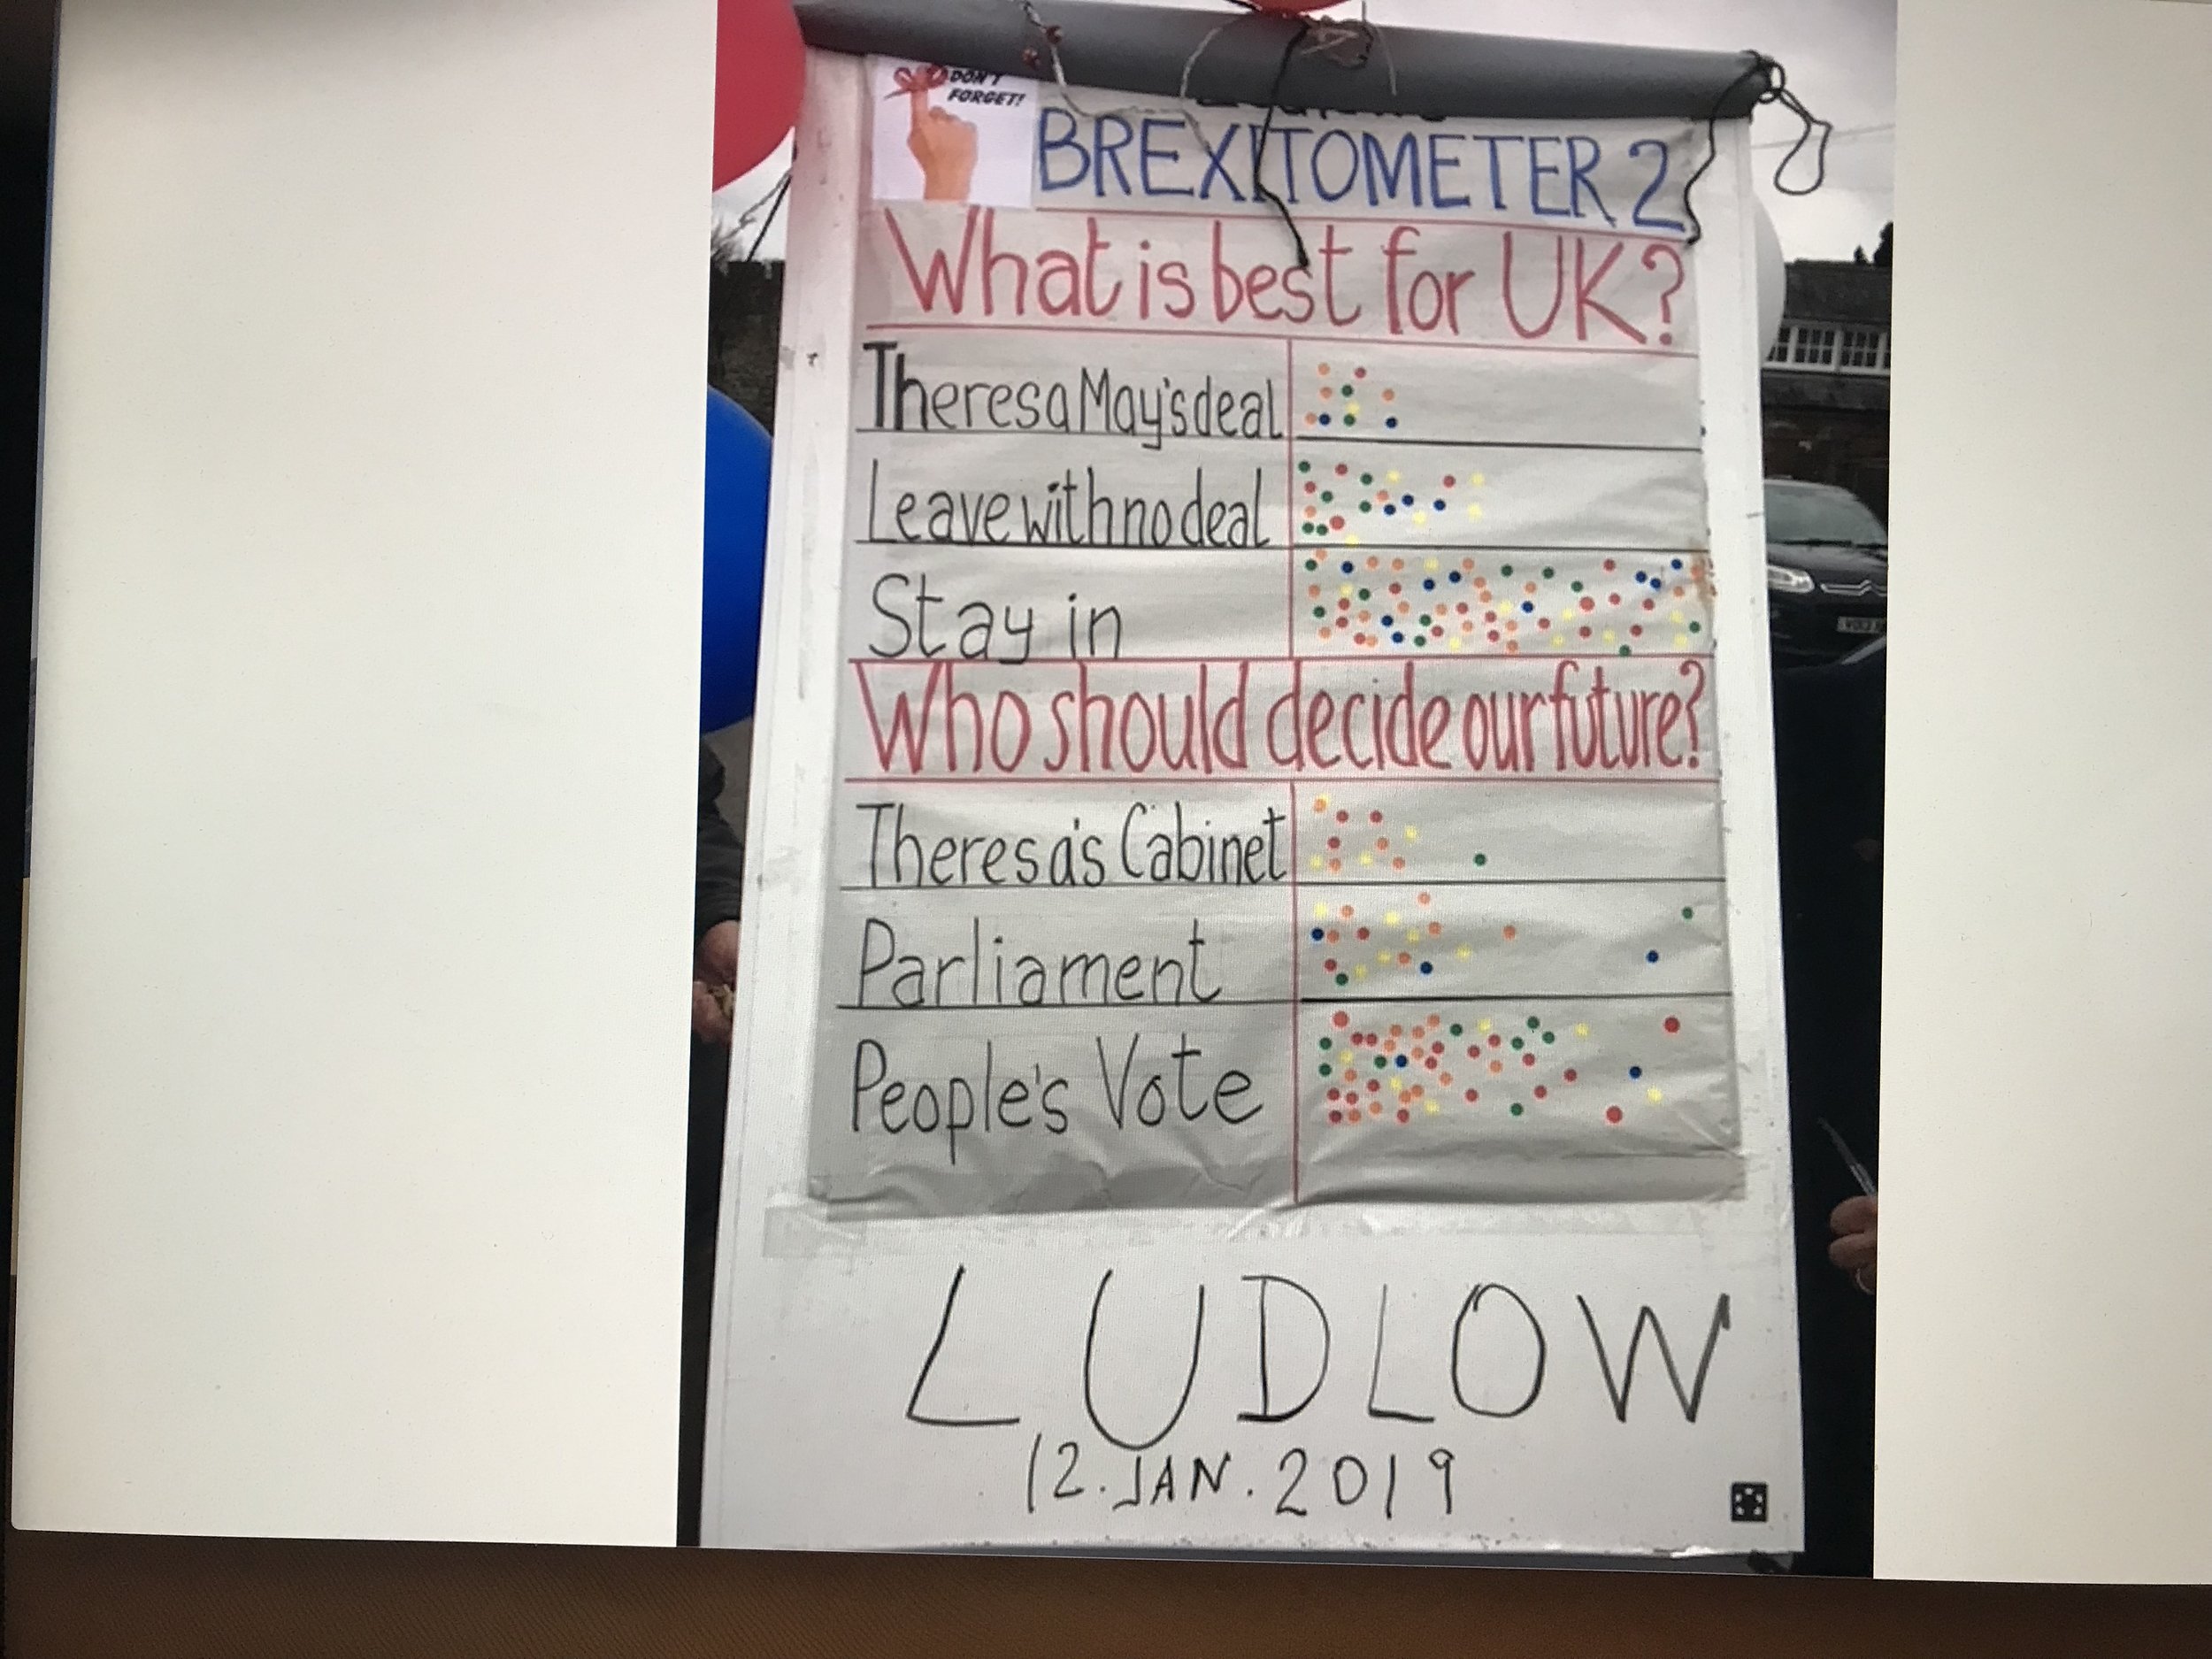 DON'T
FORGET!
BREXITOMETER 2
What is best for UK?
Theresa May's deal
Leave with no deal
Stay in
Who should decide our future?
Theresa's Cabinet
Parliament
People's Vote
LUDLOW
12.JAN.2019